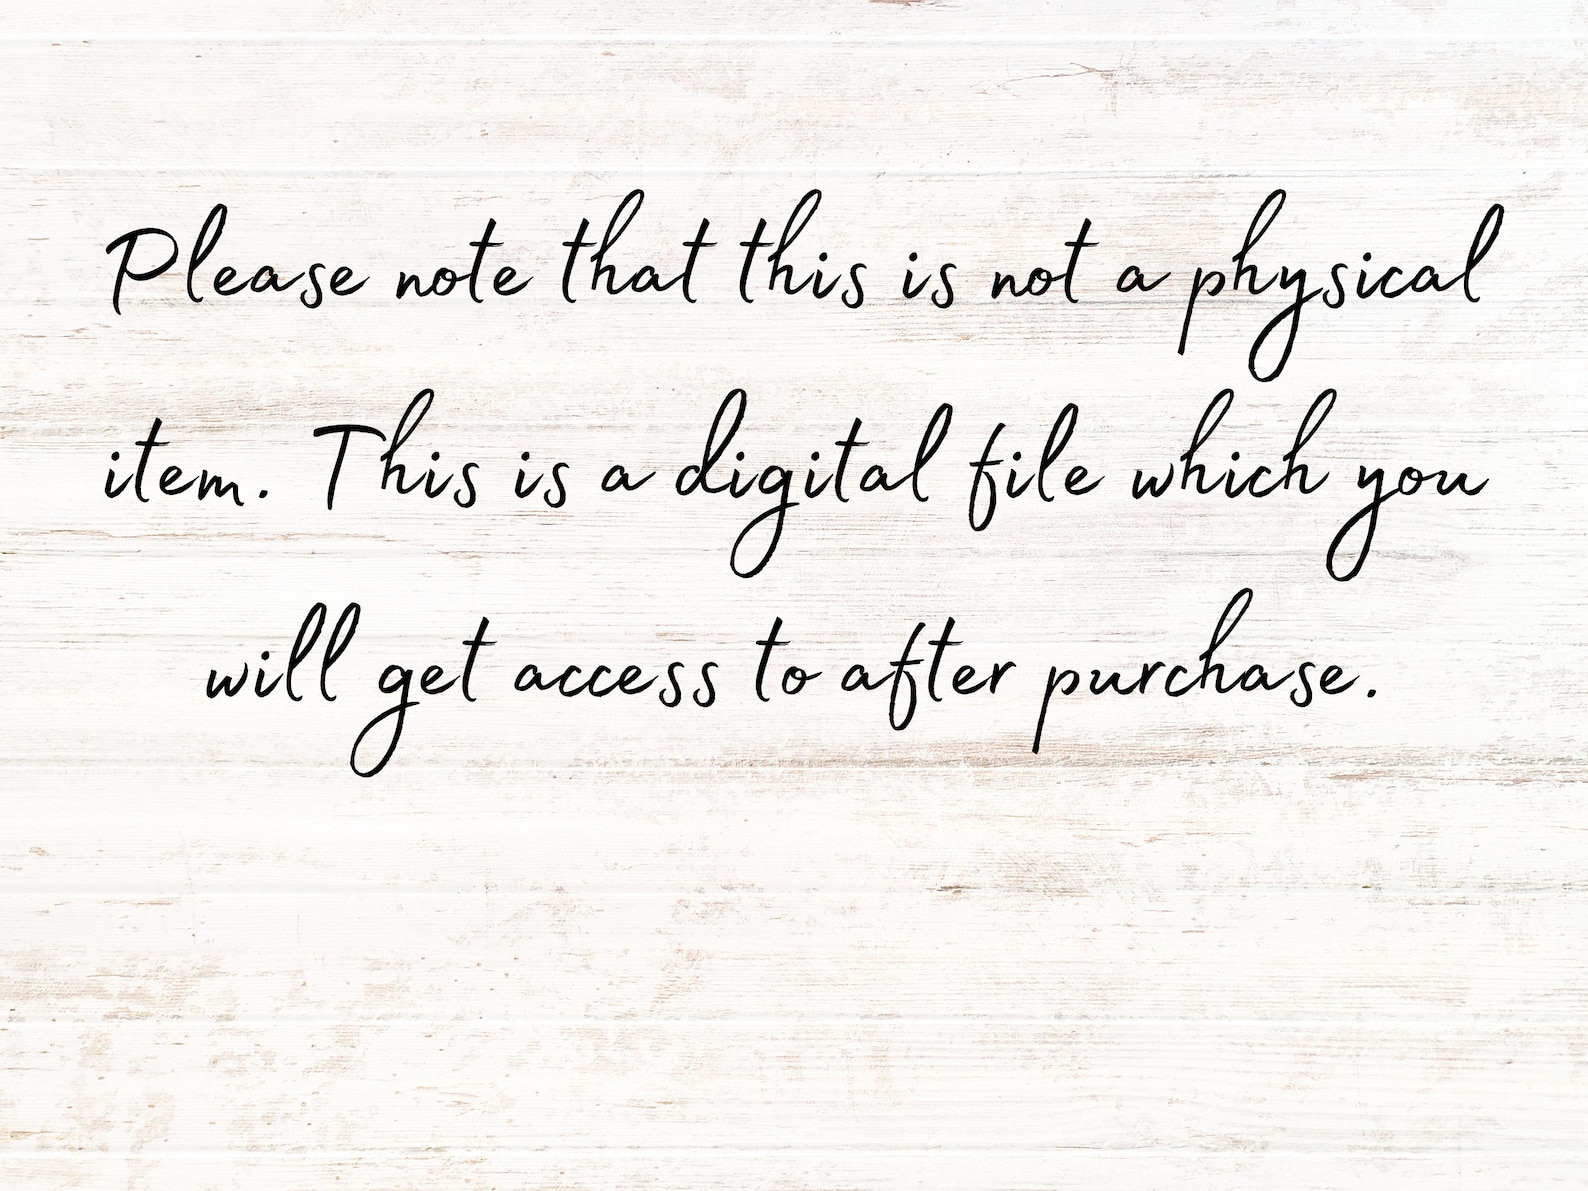 Please note that this is not a physical
item. This is a digital file which you
will get access to after purchase.